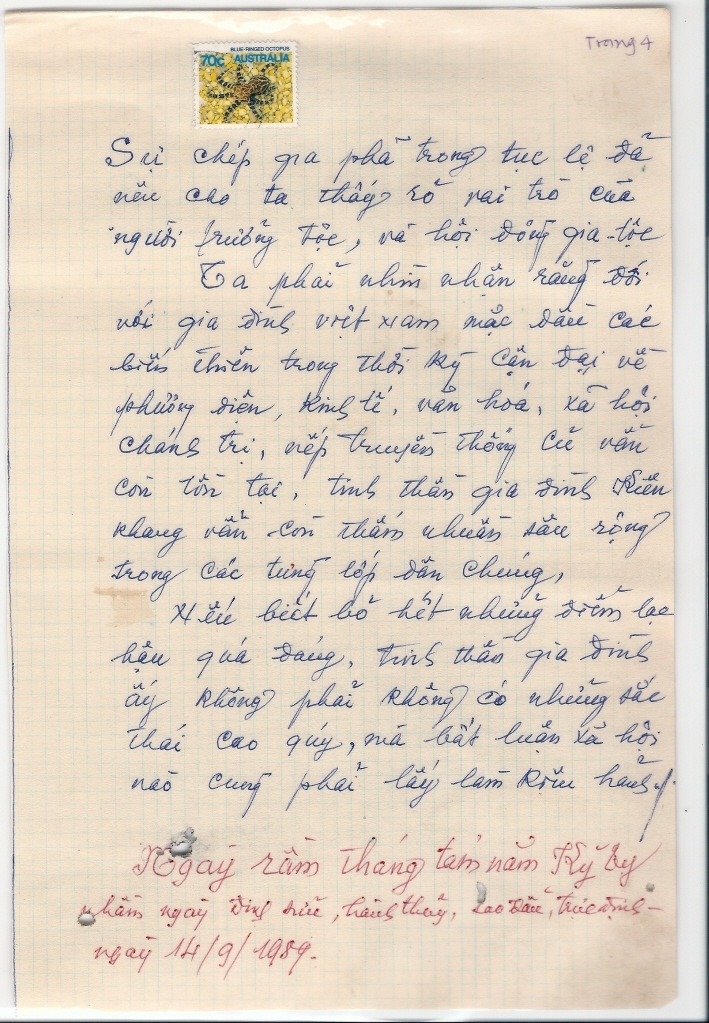 Trang 4
BLUE-RINGED OCTOPUS
70c AUSTRALIA
Sự chép gia phả trong tục lệ đã
nêu cho ta thấy rõ vai trò của
người trưởng tộc, và hội đồng gia-tộc
Ta phải nhìn nhận rằng đối
với gia đình việt nam mặc dầu các
biến thiên trong thời kỳ cận đại về
phương diện, kinh tế, văn hoá, xã hội
chánh trị, nếp truyền thống cũ vẫn
còn tồn tại, tinh thần gia đình kiên
khang vẫn còn thấm nhuần sâu rộng
trong các từng lớp dân chúng,
Nếu biết bỏ hết những điểm lạc
hậu quá đáng, tinh thần gia đình
ấy không phải không có những sắc
thái cao quý, mà bất luận xã hội
nào cũng phải lấy làm kiêu hãnh./.
Ngày rằm tháng tám năm Kỷ tỵ
nhằm ngày đinh sửu, hành thủy, sao Đẩu, trực định-
ngày 14/9/1989.